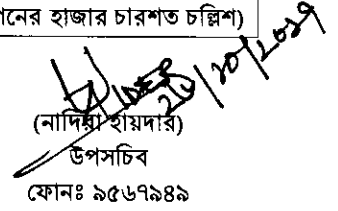 নের হাজার চারশত চল্লিশ)
(নাদিরা হায়দার)
উপসচিব
ফোনঃ ৯৫৬৭৯৪৯